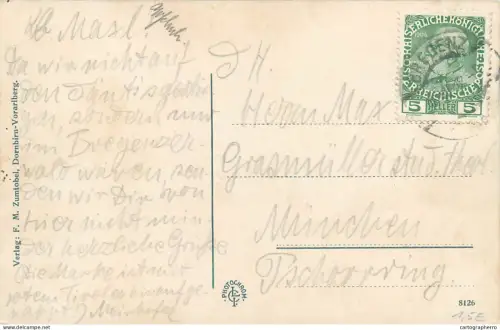 Lb Maxl
Da wir nicht auf
den Säntis
sondern nur
im Bregenzer-
wald waren, sen-
den wir Dir von
hier nicht min-
der herzliche Grüße
Die Marke ist mit
rotem
Verlag: F. M. Zumtobel, Dornbirn-Vorarlberg.
KAISERLICHE KÖNIGL
ÖSTERREICHISCHE
5 HELLER 5
D. H.
Herrn Max
Grasmüller
München
Tschorrring.
PHOTOCHROM
8126
1,5E
www.delcampe.net
cartographerro